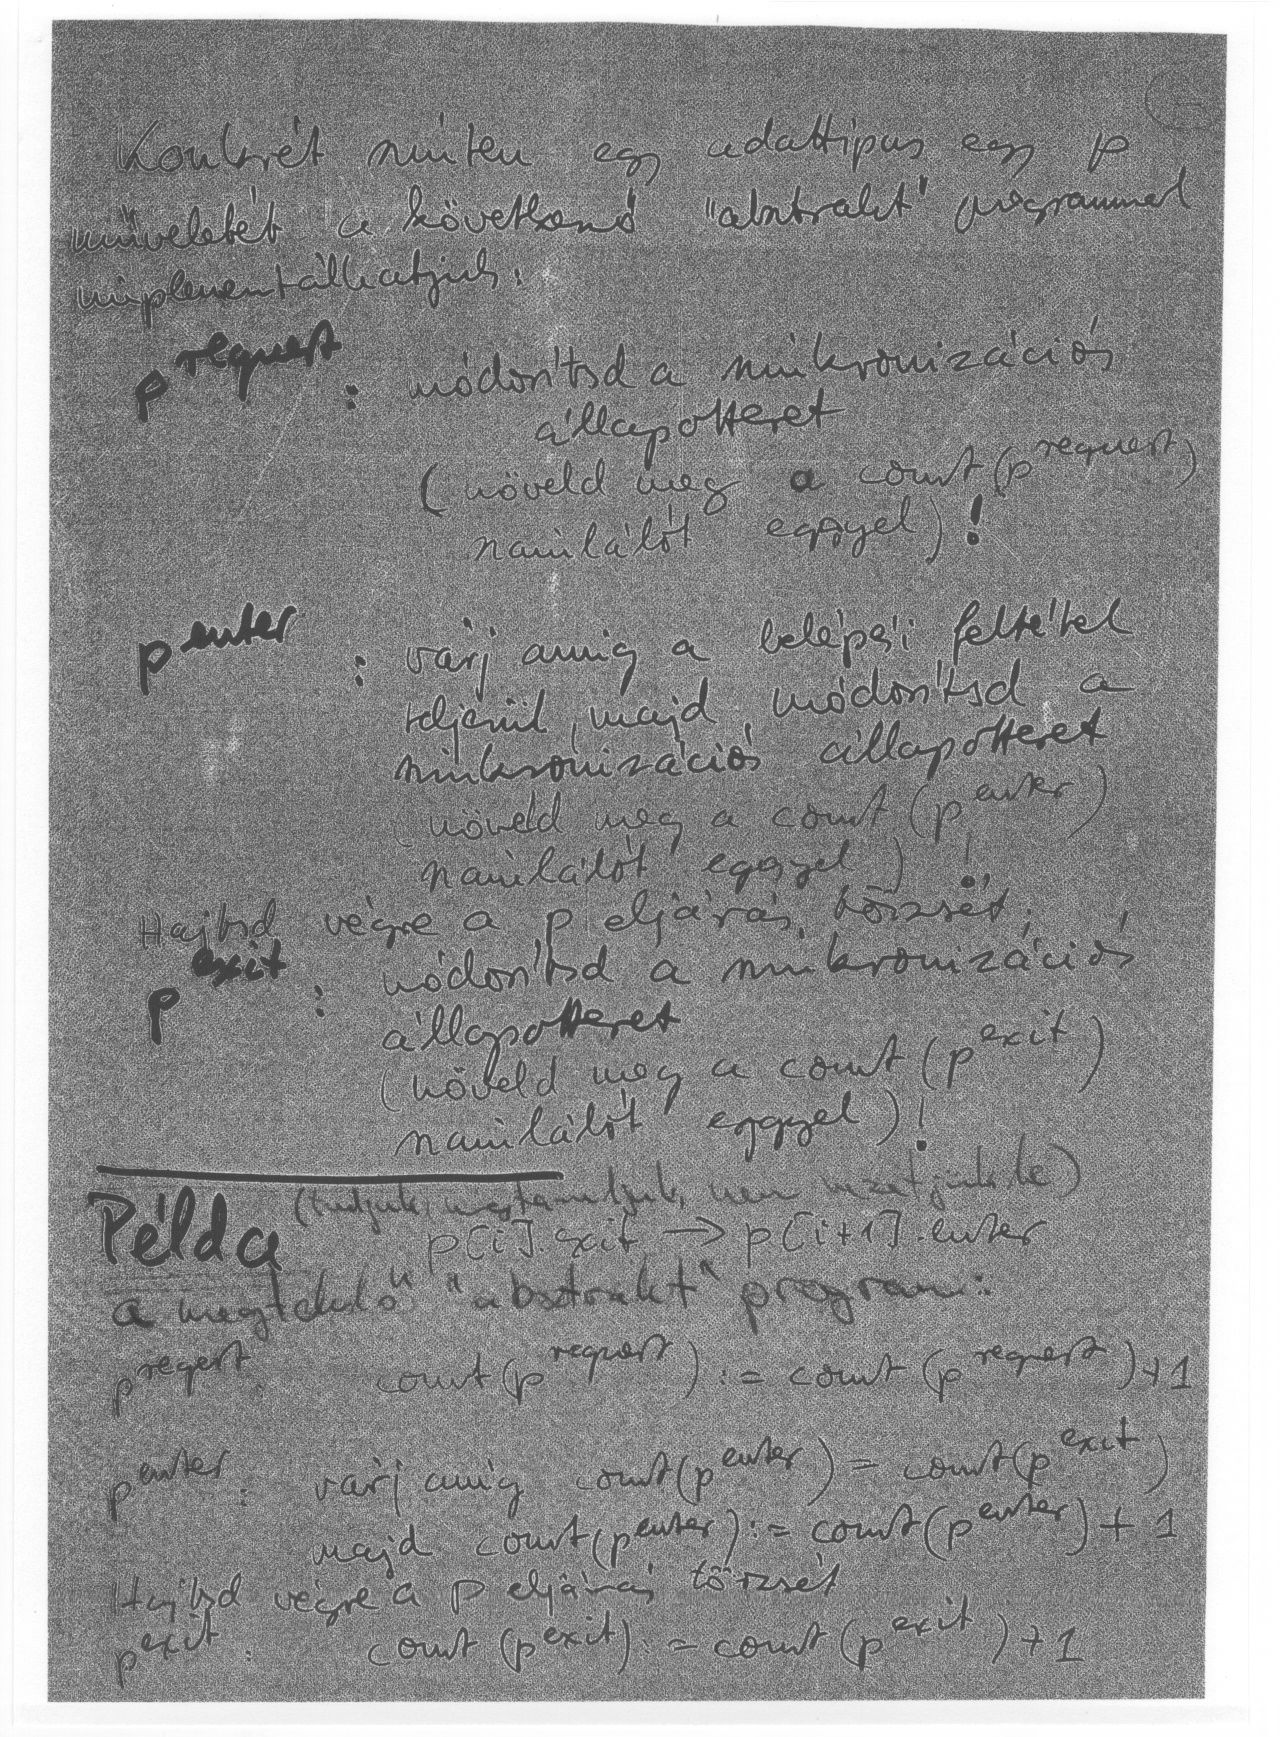 Konkrét szinten egy adattípus egy p
műveletét a következő "absztrakt" programmal
implementálhatjuk:
p^request : módosítsd a szinkronizációs
állapotteret
(növeld meg a count(p^request)
számlálót eggyel)!
p^enter : várj amíg a belépési feltétel
teljesül, majd módosítsd a
szinkronizációs állapotteret
(növeld meg a count(p^enter)
számlálót eggyel)!
Hajtsd végre a p eljárás törzsét,
p^exit : módosítsd a szinkronizációs
állapotteret
(növeld meg a count(p^exit)
számlálót eggyel)!
(tudjuk, nem vezetjük le)
Példa p[i].exit → p[i+1].enter
a megfelelő "absztrakt" program:
p^reqest: count(p^request) := count(p^request)+1
p^enter : várj amíg count(p^enter) = count(p^exit)
majd count(p^enter) := count(p^enter) + 1
Hajtsd végre a p eljárás törzsét
p^exit : count(p^exit) := count(p^exit)+1